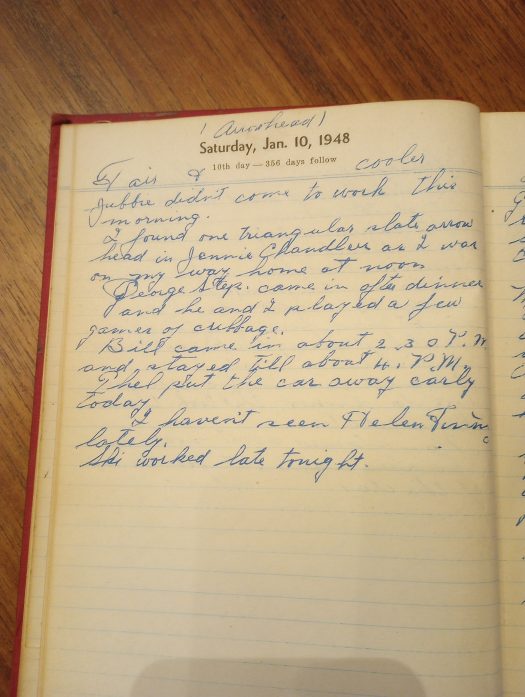 1 Arrowhead 1
Saturday, Jan. 10, 1948
10th day — 356 days follow
Fair & cooler
Jubbie didn't come to work this
morning.
I found one triangular slate arrow
head in Jennie Chandlers as I was
on my way home at noon
George Step. came in after dinner
and he and I played a few
games of cribbage.
Bill came in about 2.30 P.M.
and stayed till about 4. P.M.
Thel put the car away early
today.
I haven't seen Helen
lately.
Ski worked late tonight.